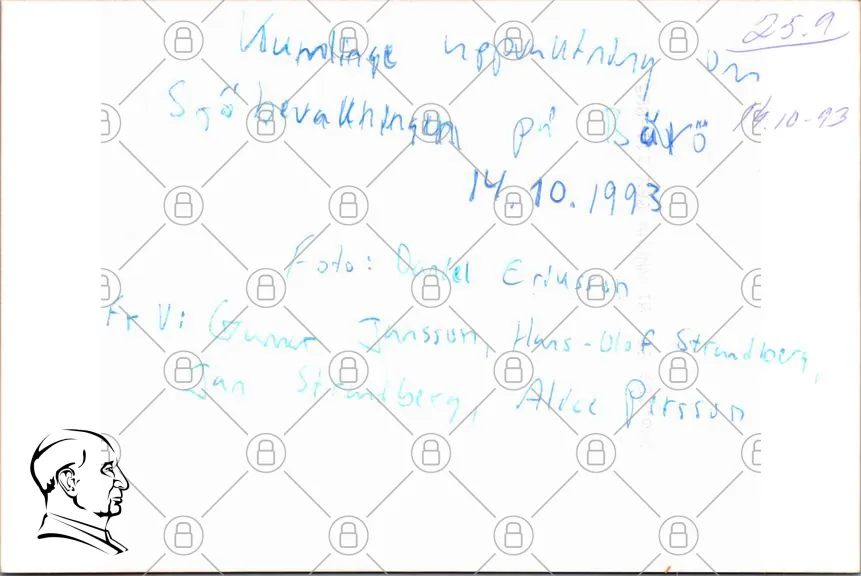 25.9
Kumlinge uppvaktning om
Sjöbevakningen på Bärö
14.10-93
14.10.1993
Foto: Daniel Eriksson
Fr V: Gunnar Jansson, Hans-Olof Strandberg,
Jan Strandberg, Alice Persson